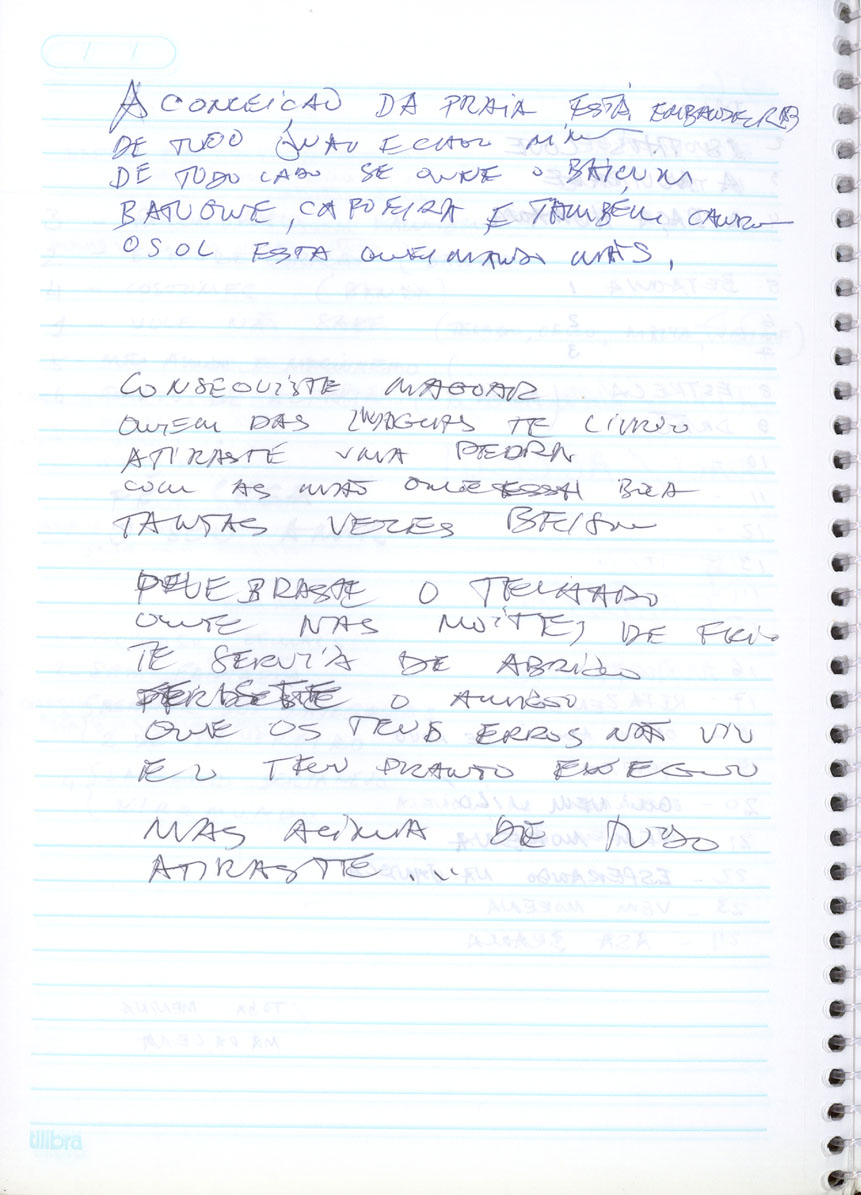 A CONCEICAO DA PRAIA ESTÁ EMBANDERAD
DE TUDO QUAU ECAUO
DE TUDO LADO SE OUVE O BAICUM
BATUQUE, CAPOEIRA E TAMBÉM CANDO
O SOL ESTA QUEIMANDO MAS,
CONSEQUISTE MAGOAR
QUEM DAS MAGUAS TE LIVROU
ATIRASTE UMA PEDRA
COM AS MÃO QUE ESSA BOCA
TANTAS VEZES BEIJOU
QUEBRASTE O TELHADO
QUE NAS NOITES DE FRIO
TE SERVIA DE ABRIGO
PERDESTE O AMIGO
QUE OS TEUS ERROS NÃO VIU
E O TEU PRANTO ENXEGOU
MAS ACIMA DE TUDO
ATIRASTE ...
tilibra